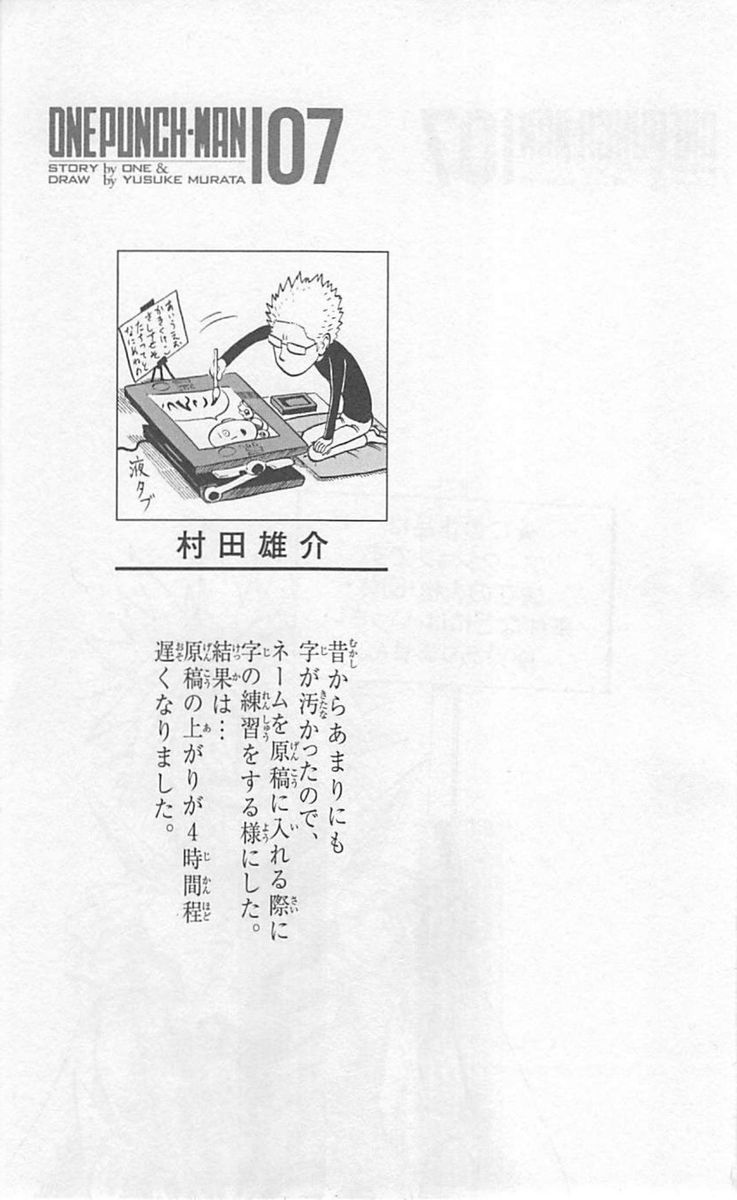 ONE PUNCH-MAN 107
STORY by ONE &
DRAW by YUSUKE MURATA
あいうえお
かきくけこ
さしすせそ
たちつてと
なにぬねの
液タブ
村田雄介
昔からあまりにも
字が汚かったので、
ネームを原稿に入れる際に
字の練習をする様にした。
結果は…
原稿の上がりが4時間程
遅くなりました。